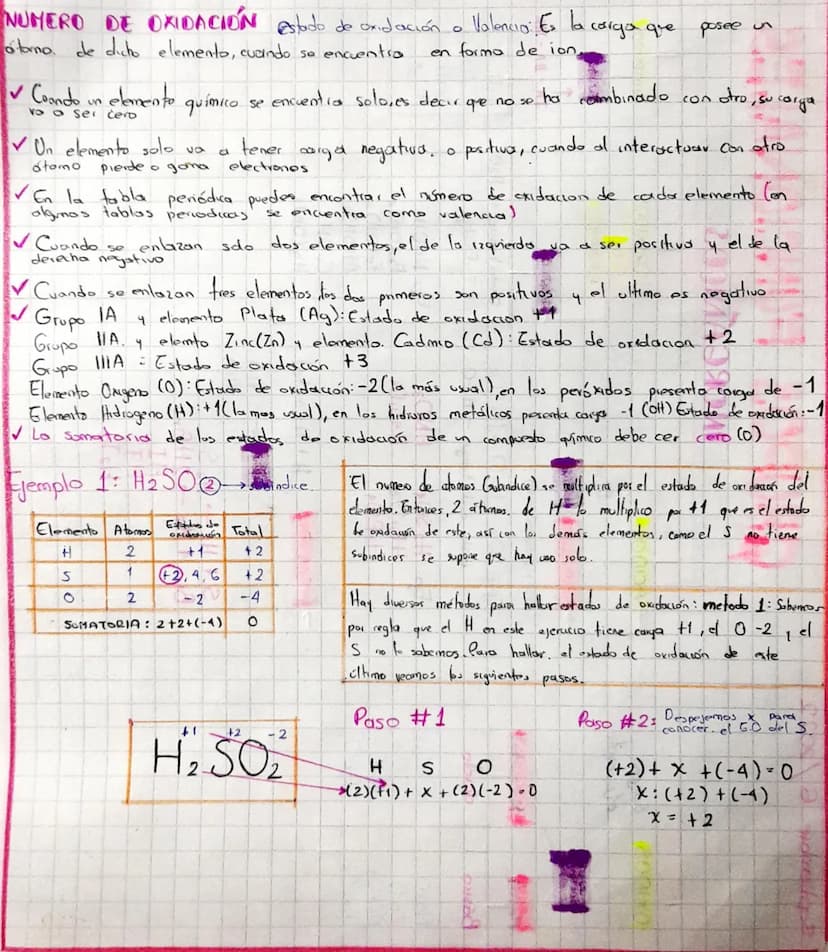 NUMERO DE OXIDACIÓN estado de oxidación o Valencia: Es la carga que posee un
átomo de dicho elemento, cuando se encuentra en forma de ion.
✓ Cuando un elemento químico se encuentra solo, es decir que no se ha combinado con otro, su carga
va a ser cero
✓ Un elemento solo va a tener carga negativa, o positiva, cuando al interactuar con otro
átomo pierde o gana electrones
✓ En la tabla periódica puedes encontrar el número de oxidacion de cada elemento (en
algunas tablas periodicas se encuentra como valencia)
✓ Cuando se enlazan solo dos elementos, el de la izquierda va a ser positivo y el de la
derecha negativo
✓ Cuando se enlazan tres elementos, los dos primeros son positivos y el ultimo es negativo
✓ Grupo IA y elemento Plata (Ag): Estado de oxidacion +1
Grupo IIA y elemto Zinc(Zn) y elemento Cadmio (Cd): Estado de oxidacion +2
Grupo IIIA : Estado de oxidación +3
Elemento Oxigeno (O): Estado de oxidación: -2 (la más usual), en los peróxidos presenta carga de -1
Elemento Hidrogeno (H): +1 (la mas usual), en los hidruros metálicos presenta carga -1 (OH) Estado de oxidación: -1
✓ La somatoria de los estados de oxidación de un compuesto químico debe cer cero (0)
Ejemplo 1: H₂SO② → subindice
Elemento Atomos Estados de oxidación Total
H 2 +1 +2
S 1 +2, 4, 6 +2
O 2 -2 -4
SUMATORIA: 2+2+(-4) 0
El numero de atomos (subindice) se multiplica por el estado de oxidacion del
elemento. Entonces, 2 átomos de H lo multiplico por +1 que es el estado
de oxidación de este, así con los demás elementos, como el S no tiene
subindices se supone que hay uno solo.
Hay diversos métodos para hallar estados de oxidación: metodo 1: Sabemos
por regla que el H en este ejercicio tiene carga +1, el O -2, el
S no lo sabemos. Para hallar el estado de oxidación de este
último veamos los siguientes pasos.
+1 +2 -2
H₂SO₂
Paso #1
H S O
(2)(+1) + x + (2)(-2) = 0
Paso #2: Despejemos x para
conocer el E.O del S.
(+2) + x + (-4) = 0
x: (+2) + (-4)
x = +2